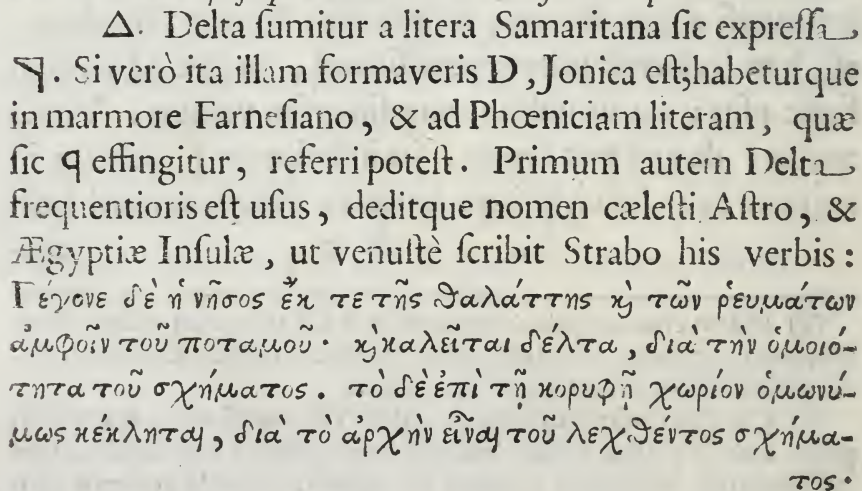 Δ. Delta ſumitur a litera Samaritana ſic expreſſa
ࠃ. Si verò ita illam formaveris D, Jonica eſt; habeturque
in marmore Farneſiano, & ad Phœniciam literam, quæ
ſic ꟼ effingitur, referri poteſt. Primum autem Delta
frequentioris eſt uſus, deditque nomen cæleſti Aſtro, &
Ægyptiæ Inſulæ, ut venuſtè ſcribit Strabo his verbis:
Γέγονε δὲ ἡ νῆσος ἔκ τε τῆς θαλάττης ϗ τῶν ῥευμάτων
ἀμφοῖν τοῦ ποταμοῦ· ϗ καλεῖται δέλτα, διὰ τὴν ὁμοιό-
τητα τοῦ σχήματος. τὸ δὲ ἐπὶ τῇ κορυφῇ χωρίον ὁμωνύ-
μως κέκληται, διὰ τὸ ἀρχὴν εἶναι τοῦ λεχθέντος σχήμα-
τος·